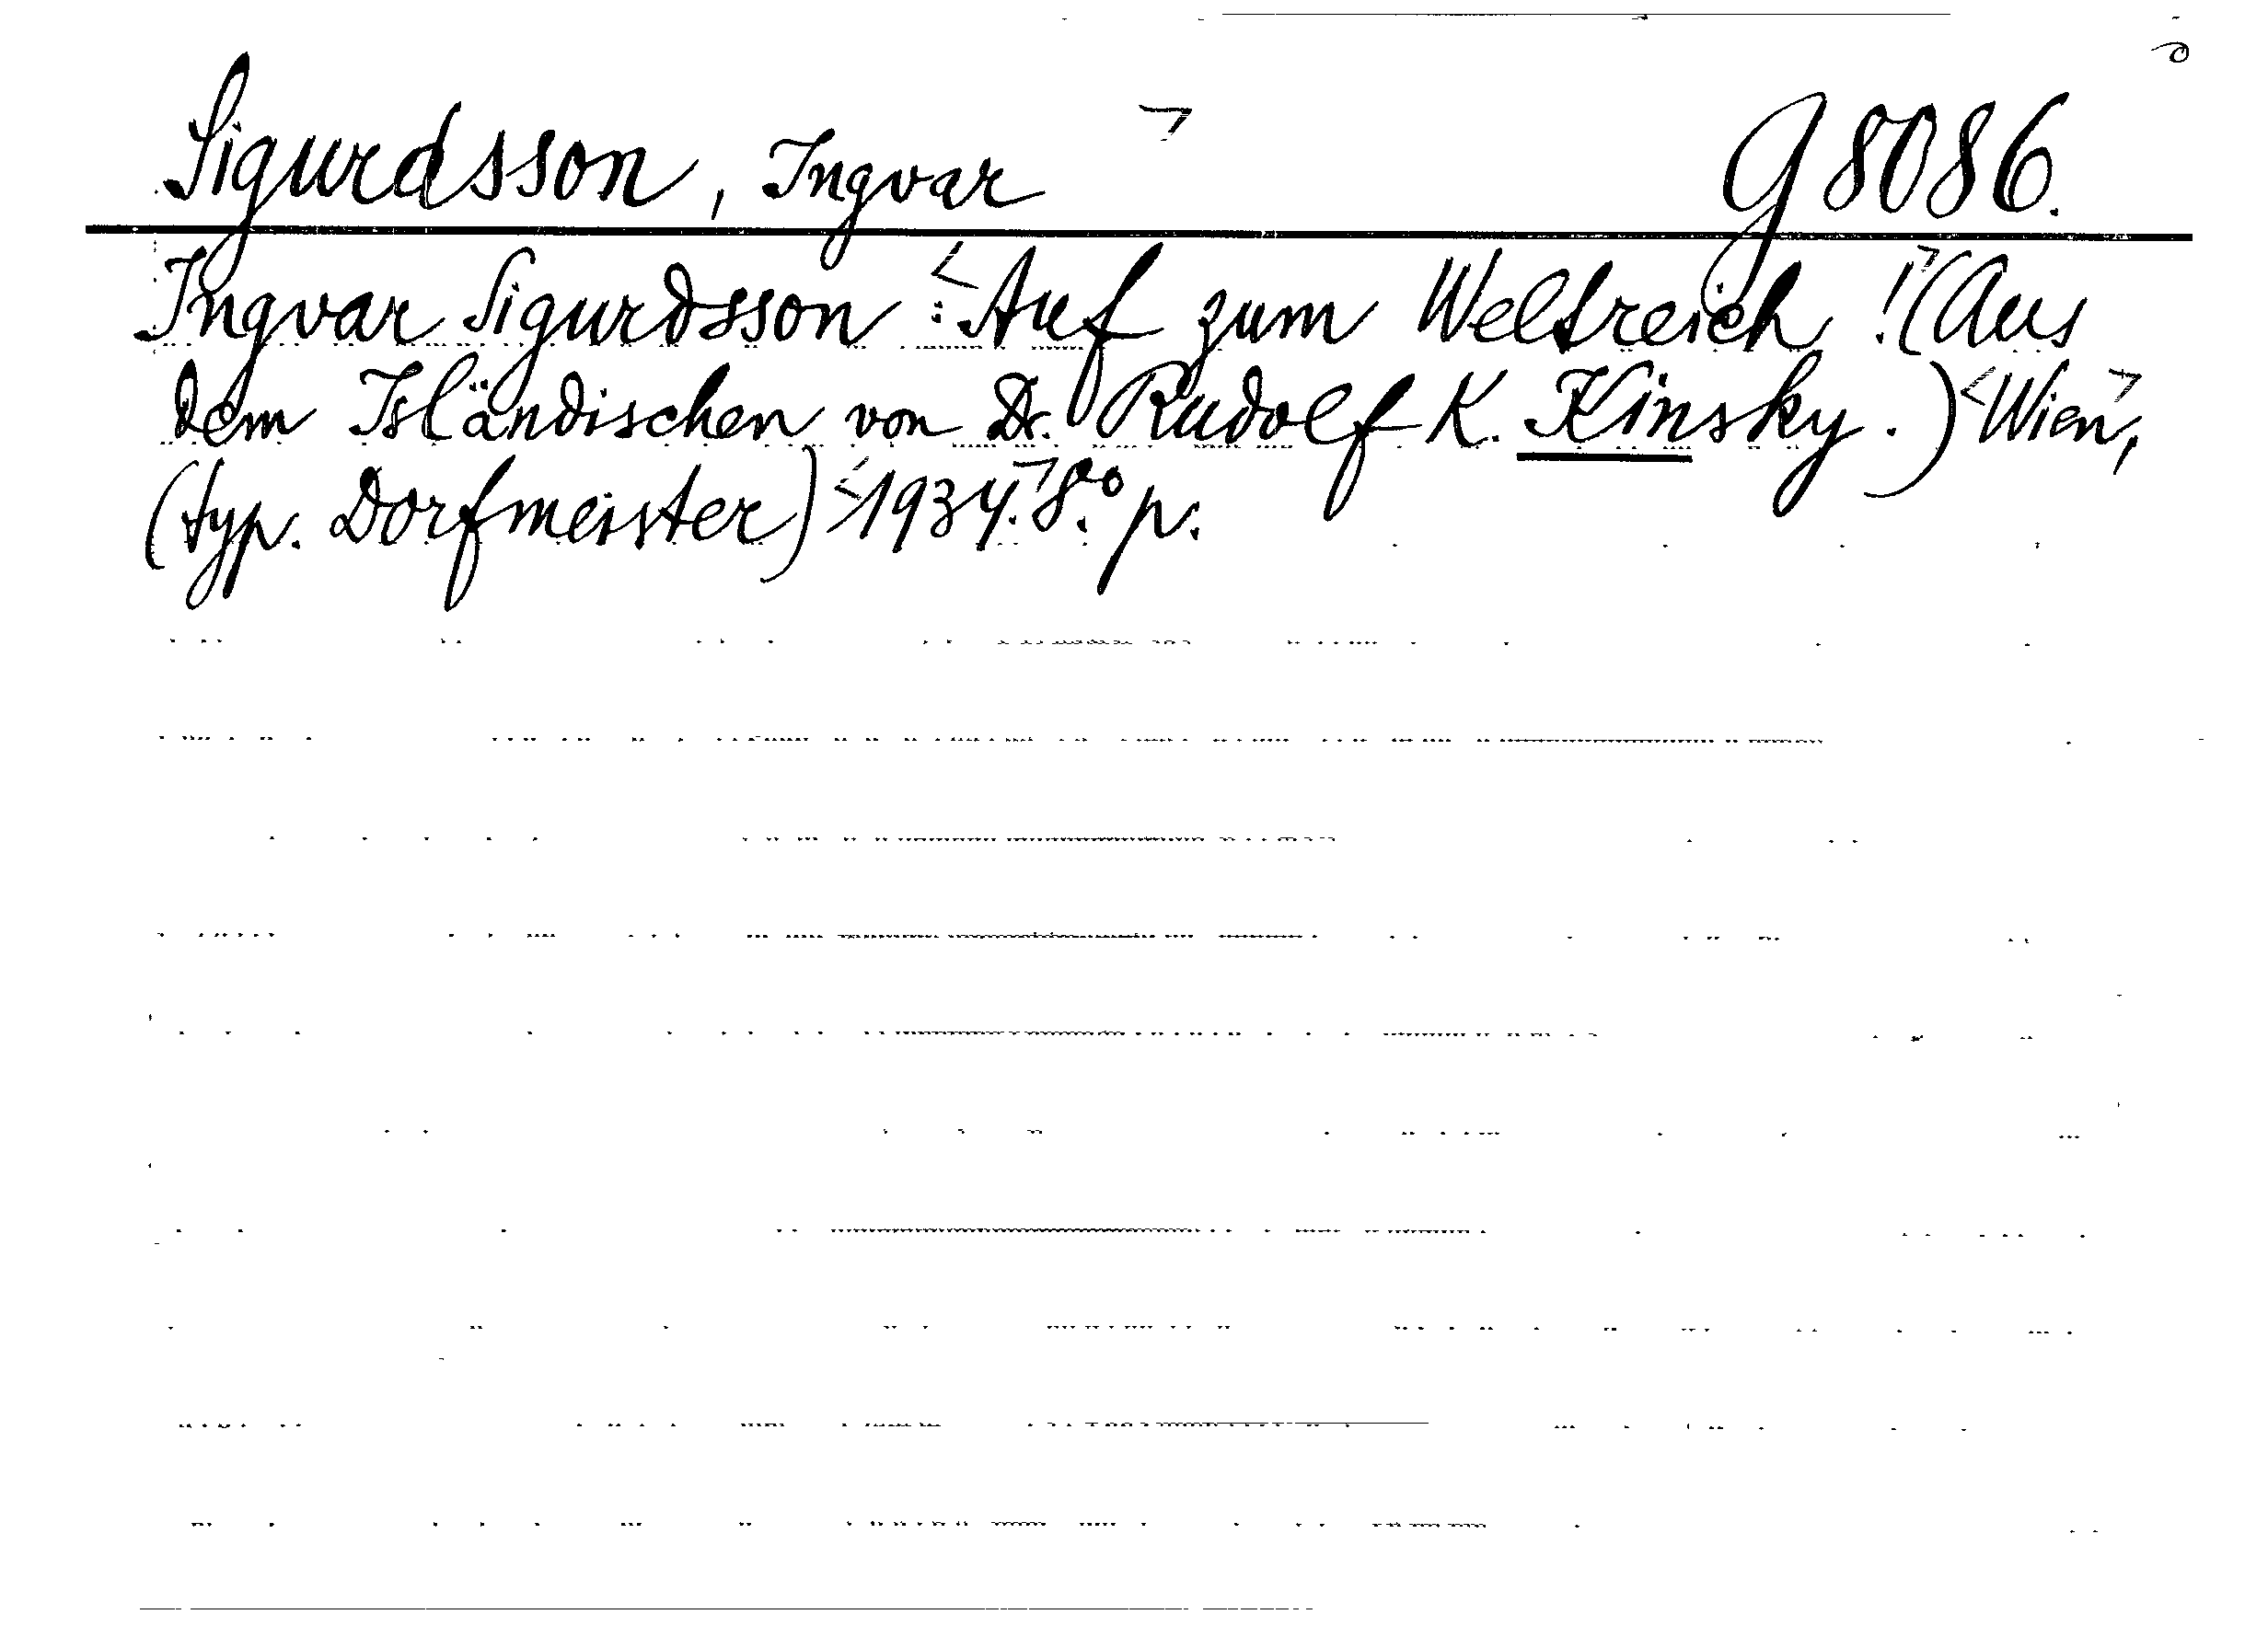 Sigurdsson, Ingvar g 8086.
Ingvar Sigurdsson : Auf zum Weltreich! (Aus
dem Isländischen von Dr. Rudolf K. Kinsky.) Wien,
(typ. Dorfmeister) 1934. 8° p.